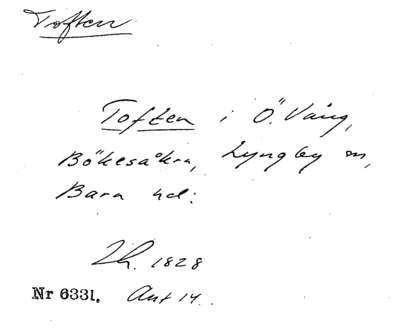 Toften
Toften i Ö. Vång,
Bökesåkra, Lyngby sn,
Bara hd.
Lh. 1828
Nr 6331. Akt 14.